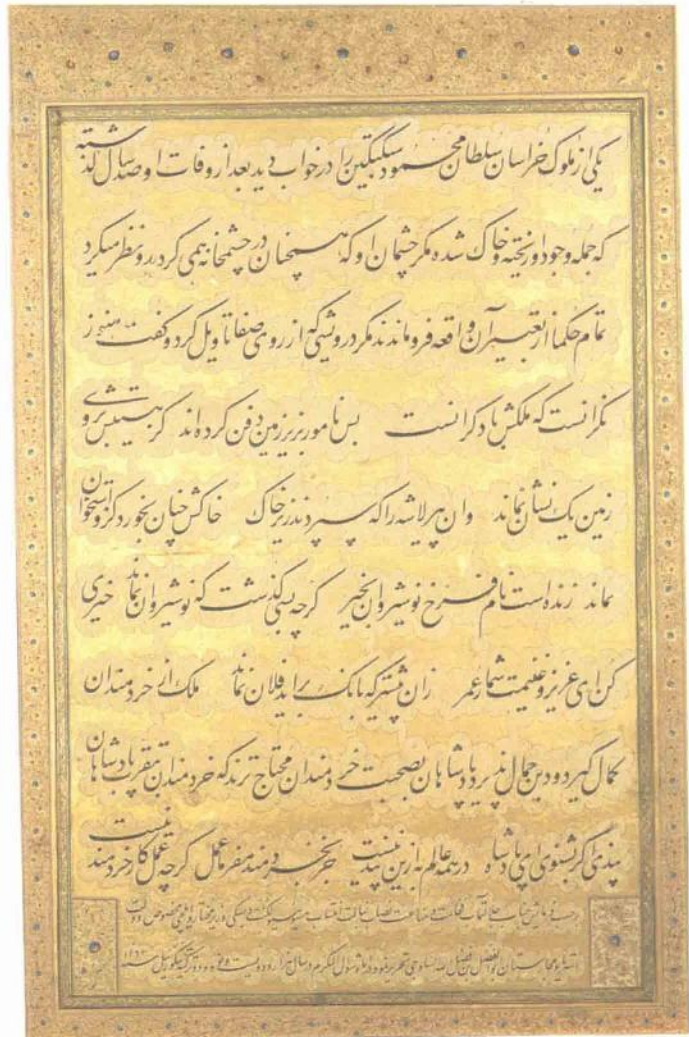 یکی از ملوک خراسان سلطان محمود سبکتکین را در خواب دید بعد از وفات او صد سال گذشته
که جمله وجود او ریخته و خاک شده مگر چشمان او که همچنان در چشمخانه همی گردد و نظر میکرد
تمام حکما از تعبیر آن واقعه فرو ماندند مگر درویشی که از روی صفا تاویل کرد و گفت هنوز
نگرانست که ملکش با دگرانست بس نامور بزیر زمین دفن کرده اند کز هستیش بروی
زمین یک نشان نماند وان پیر لاشه را که سپردند زیر خاک خاکش چنان بخورد کزو استخوان
نماند زنده است نام فرخ نوشیروان بخیر گرچه بسی گذشت که نوشیروان نماند خیری
کن ای عزیز و غنیمت شمار عمر زان پیشتر که بانگ براید فلان نماند ملک از خردمندان
کمال گیرد و دین جمال پذیرد پادشاهان بصحبت خردمندان محتاج ترند که خردمندان بتقرب پادشاهان
پندی اگر بشنوی ای پادشاه در همه عالم به ازین پند نیست جز بخردمند مفرما عمل گرچه عمل کار خردمند نیست